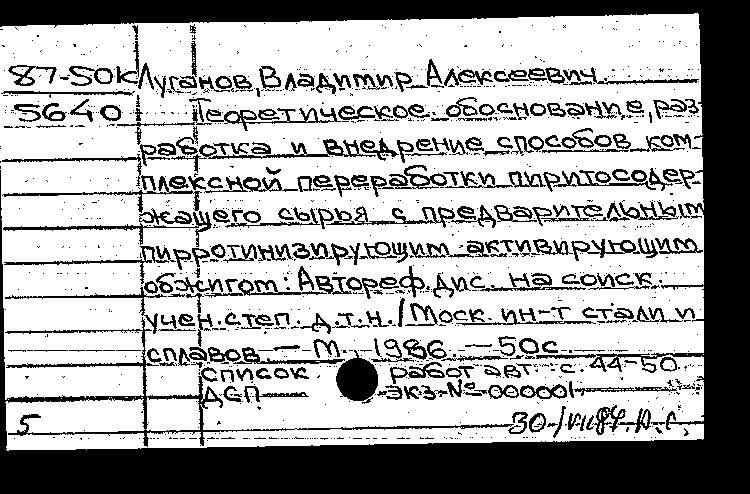 87-50К Луганов, Владимир Алексеевич.
5640 Теоретическое обоснование, раз-
работка и внедрение способов ком-
плексной переработки пиритосодер-
жащего сырья с предварительным
пирротинизирующим активирующим
обжигом: Автореф. дис. на соиск.
учен. степ. д.т.н. / Моск. ин-т стали и
сплавов. — М., 1986. — 50с.
список работ авт.: с. 44-50
ДСП экз. № 000001
5